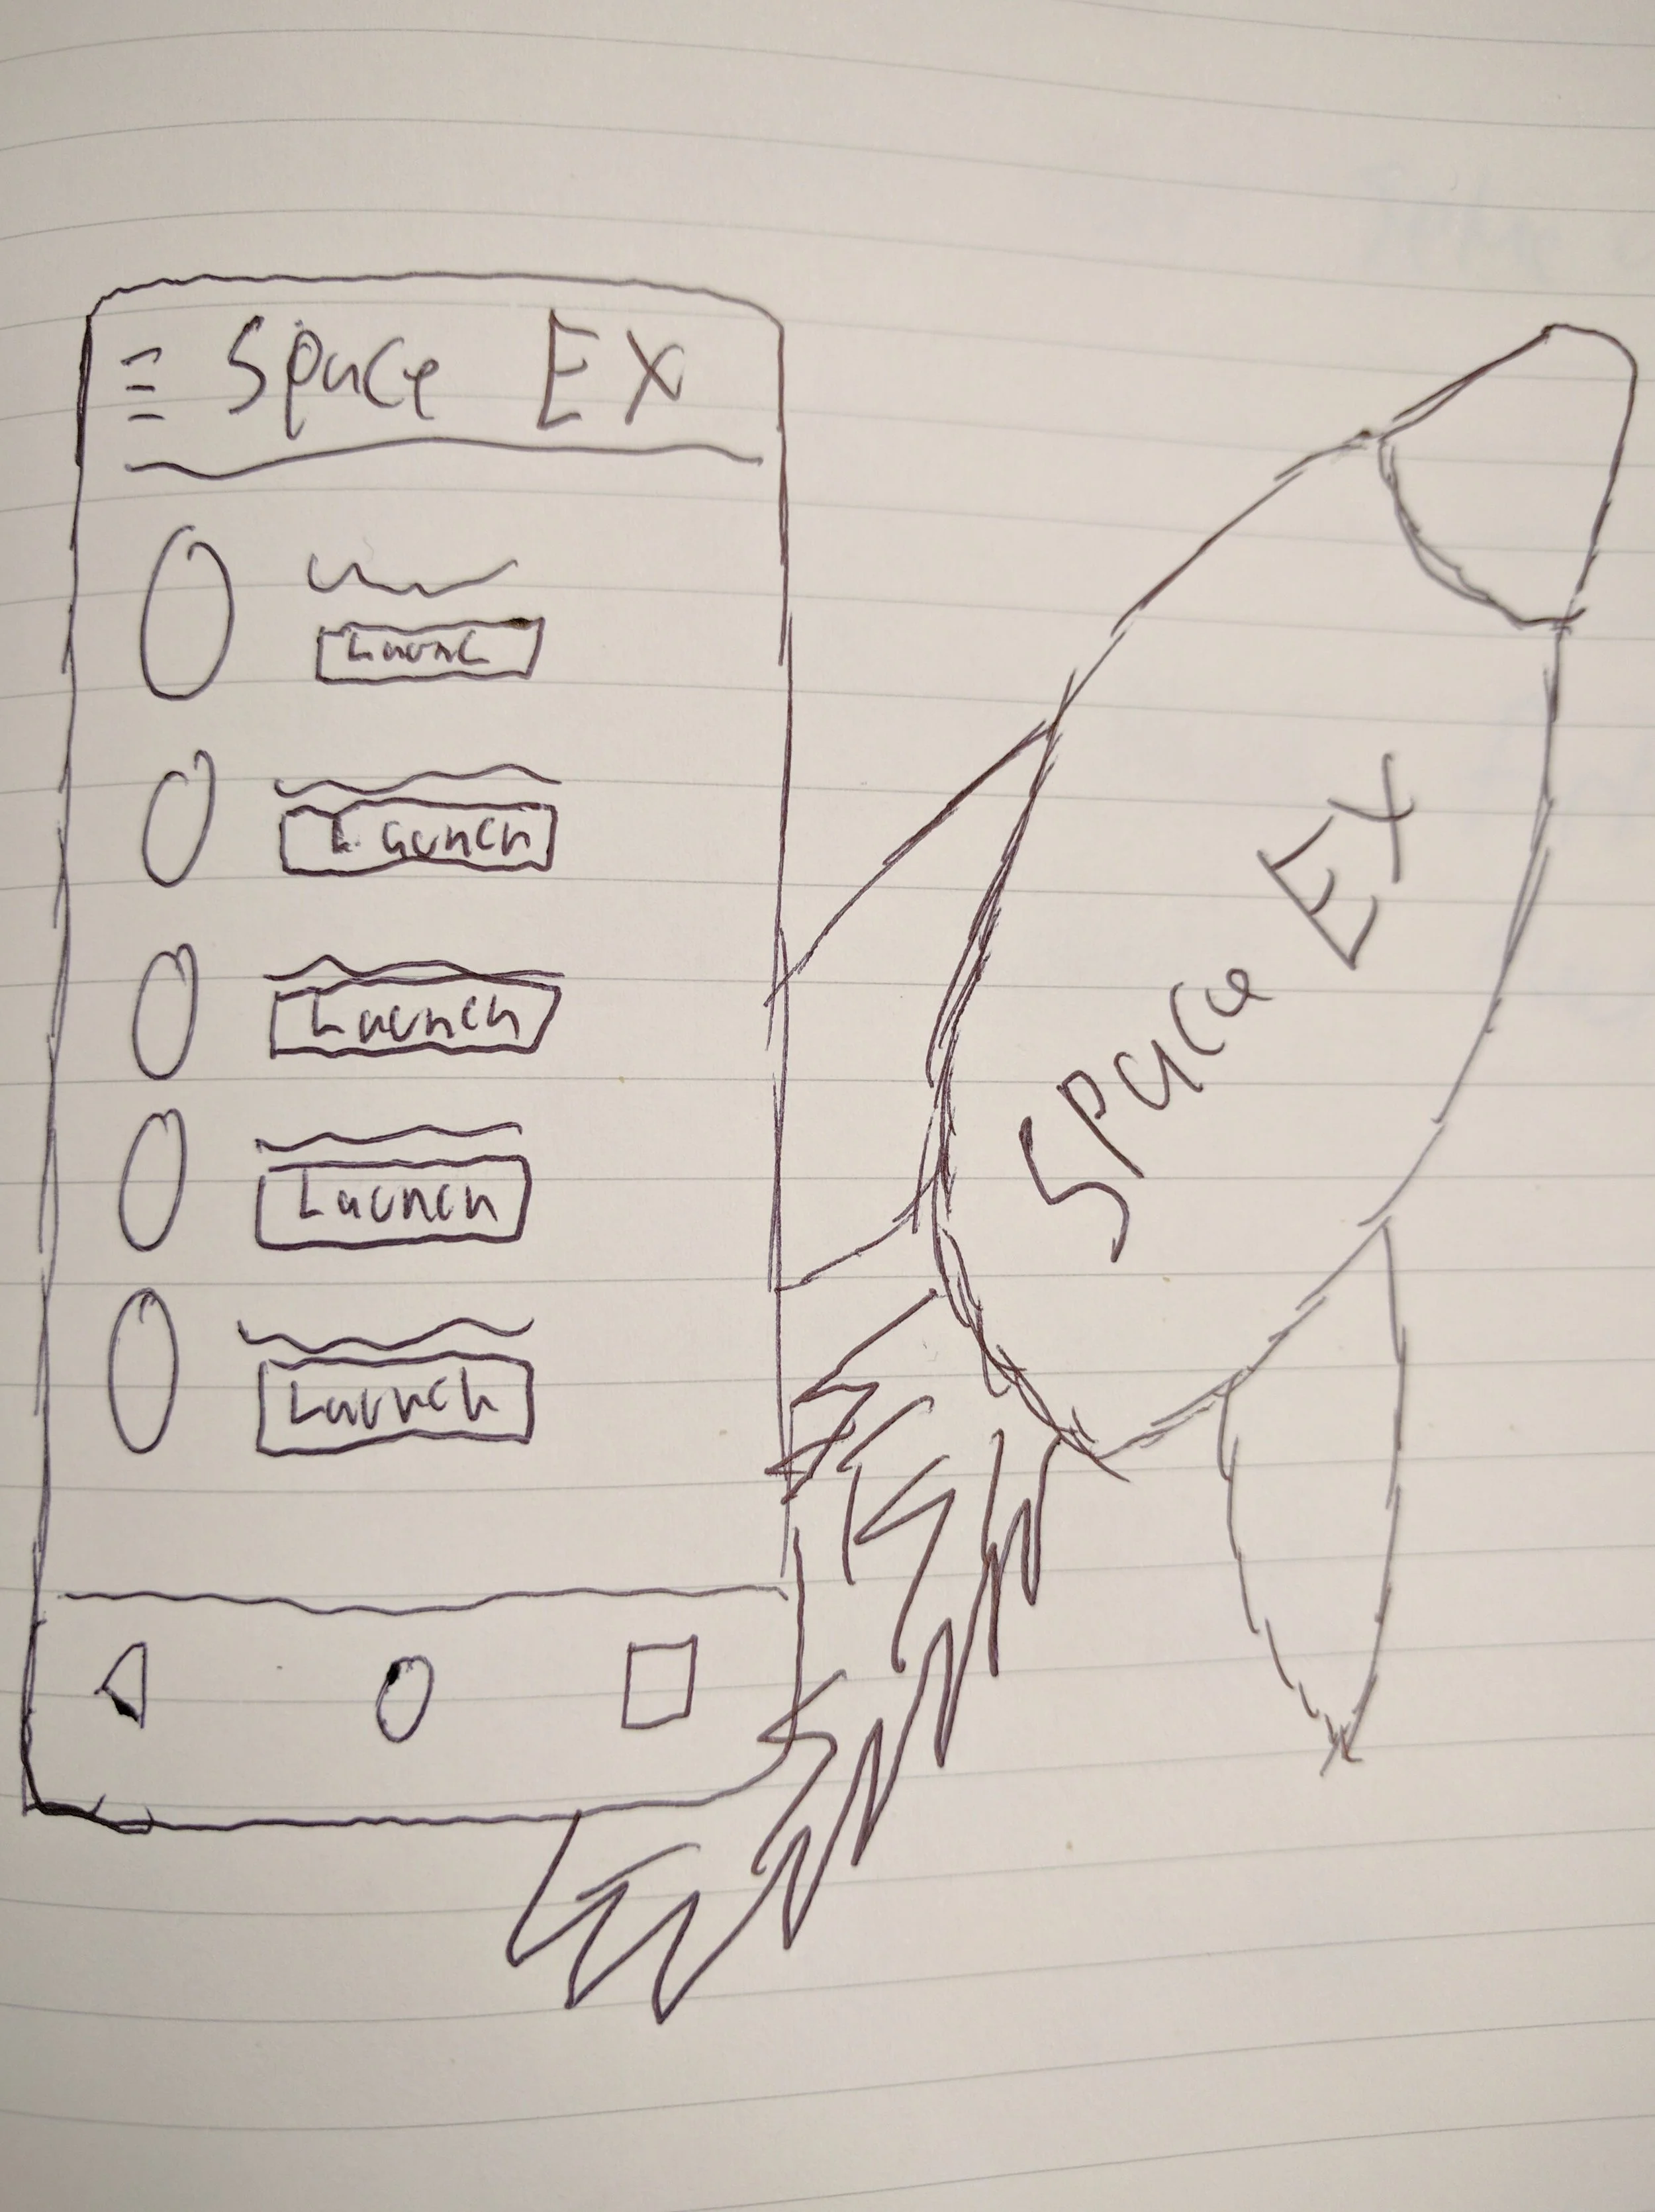 Space EX
Launc
Launch
Launch
Launch
Launch
Space EX